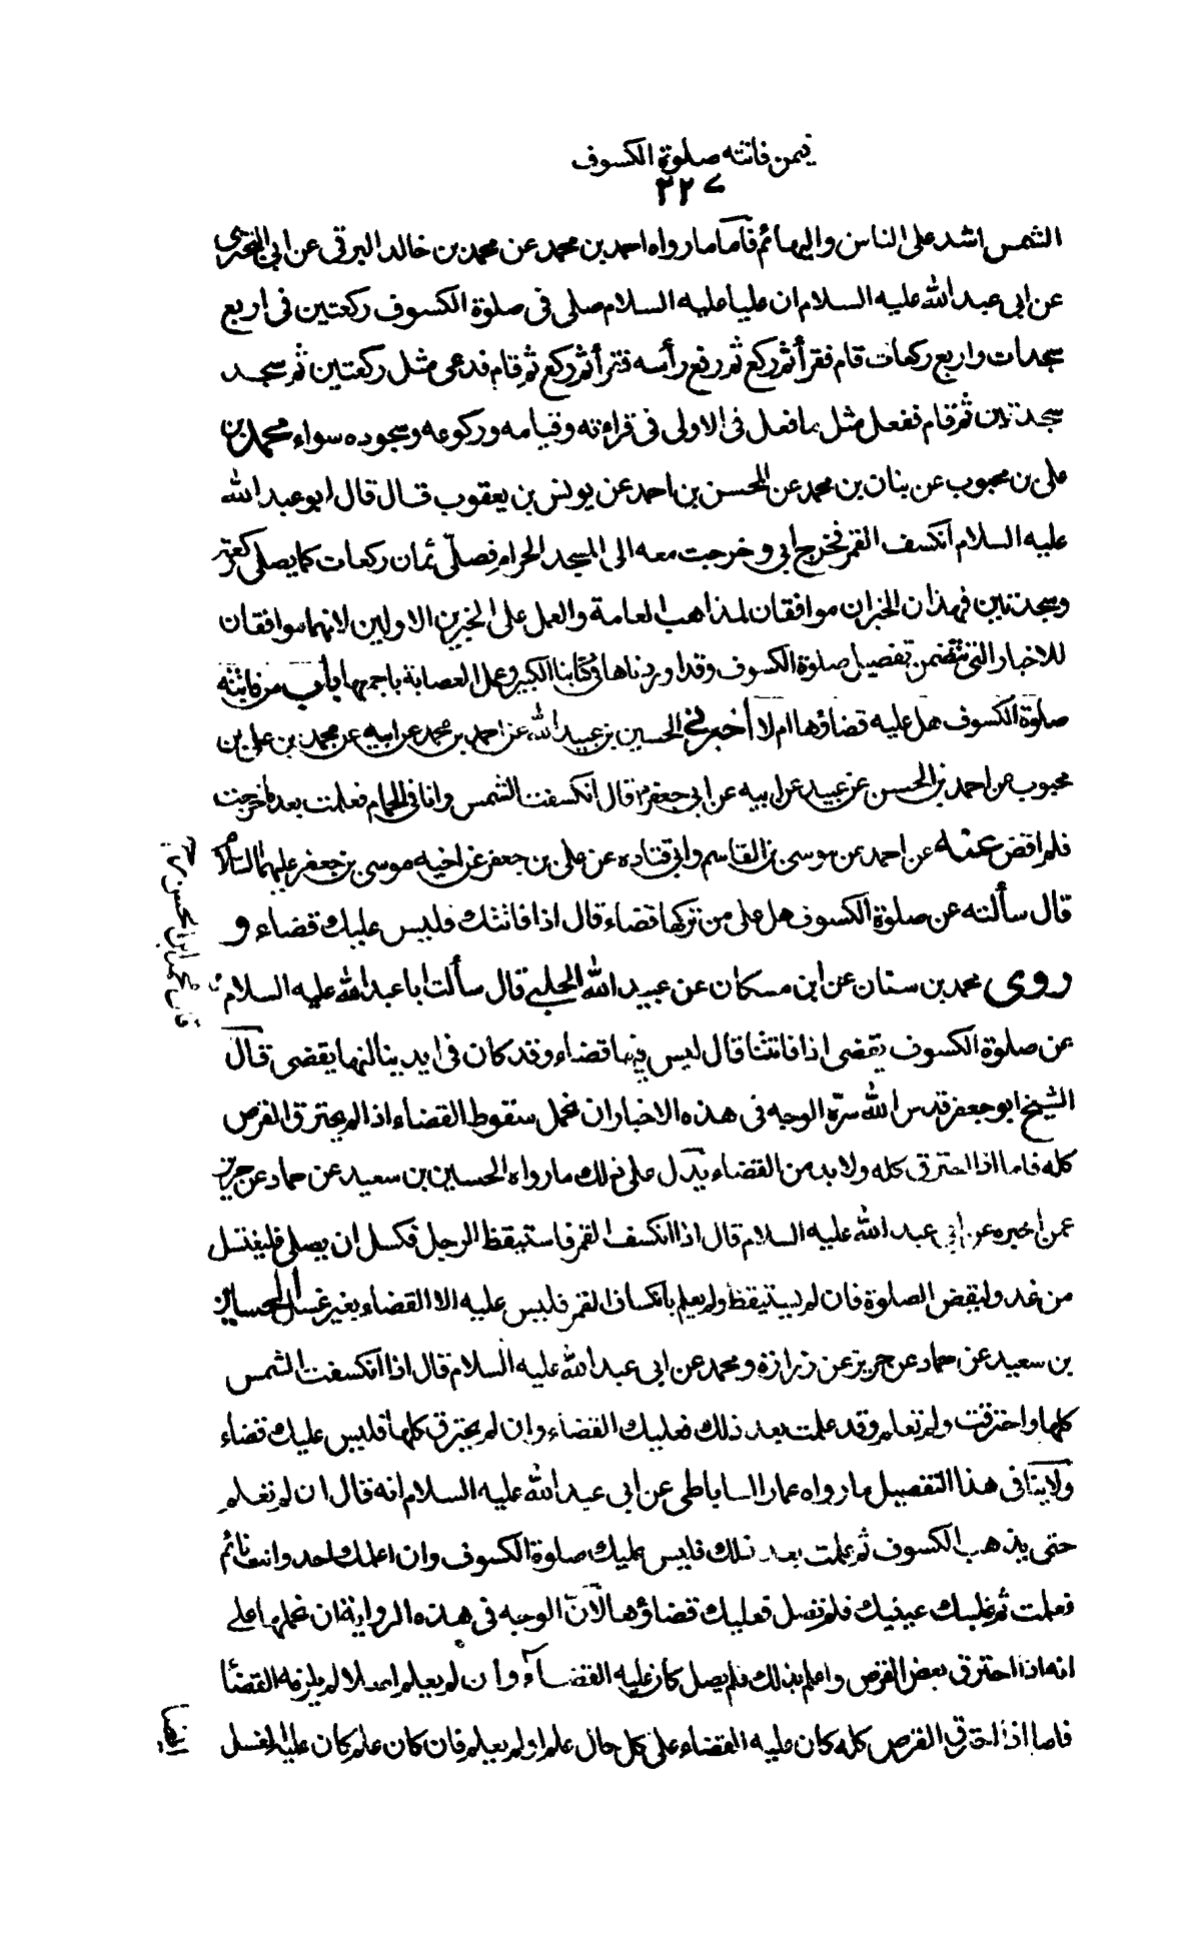 فيمن فاتته صلوة الكسوف
٢٢٧
الشمس اشد على الناس والبهائم فامّا ما رواه احمد بن محمد عن محمد بن خالد البرقى عن ابى البخترى
عن ابى عبد الله عليه السلام ان عليا عليه السلام صلى فى صلوة الكسوف ركعتين فى اربع
سجدات واربع ركعات قام فقرأ ثم ركع ثم رفع رأسه فقرأ ثم ركع ثم قام فدعى مثل ركعتين ثم سجد
سجدتين ثم قام ففعل مثل ما فعل فى الاولى فى قراءته وقيامه وركوعه وسجوده سواء محمد بن
على بن محبوب عن بنان بن محمد عن المحسن بن احمد عن يونس بن يعقوب قال قال ابو عبد الله
عليه السلام انكسف القمر فخرج ابى وخرجت معه الى المسجد الحرام فصلّى ثمان ركعات كما يصلى ركعة
وسجدتين فهذان الخبران موافقان لمذاهب العامة والعمل على الخبرين الاولين لانهما موافقان
للاخبار التى تتضمن تفصيل صلوة الكسوف وقد اوردناها فى كتابنا الكبير وعمل العصابة باجمعها باب من فاتته
صلوة الكسوف هل عليه قضاؤها ام لا أخبرنى الحسين بن عبيد الله عن احمد بن محمد عن ابيه عن محمد بن على بن
محبوب عن احمد بن الحسن عن عبيد عن ابيه عن ابى جعفر قال انكسفت الشمس وانا فى الحمام فعلمت بعد ما خرجت
فلم اقض عنه عن احمد عن موسى بن القاسم وابى قتادة عن على بن جعفر عن اخيه موسى بن جعفر عليهما السلام
قال سألته عن صلوة الكسوف هل على من تركها قضاء قال اذا فاتتك فليس عليك قضاء و
روى محمد بن سنان عن ابن مسكان عن عبيد الله الحلبى قال سألت ابا عبد الله عليه السلام
عن صلوة الكسوف تقضى اذا فاتتنا قال ليس فيها قضاء وقد كان فى ايدينا انها يقضى قال
الشيخ ابو جعفر قدس الله سرّه الوجه فى هذه الاخبار ان نحمل سقوط القضاء اذا لم يحترق القرص
كله فاما اذا احترق كله ولا بد من القضاء يدل على ذلك ما رواه الحسين بن سعيد عن حماد عن حريز
عمن اخبره عن ابى عبد الله عليه السلام قال اذا انكسف القمر فاستيقظ الرجل فكسل ان يصلى فليغتسل
من غد وليقض الصلوة فان لم يستيقظ ولم يعلم بانكساف القمر فليس عليه الا القضاء بغير غسل الحسين
بن سعيد عن حماد عن حريز عن زرارة ومحمد عن ابى عبد الله عليه السلام قال اذا انكسفت الشمس
كلها واحترقت ولم تعلم وقد علمت بعد ذلك فعليك القضاء وان لم يحترق كلها فليس عليك قضاء
ولا ينافى هذا التفصيل ما رواه عمار الساباطى عن ابى عبد الله عليه السلام انه قال ان لم تعلم
حتى يذهب الكسوف ثم علمت بعد ذلك فليس عليك صلوة الكسوف وان اعلمك احد وانت نائم
فعلمت ثم غلبتك عينيك فلم تصل فعليك قضاؤها لانّ الوجه فى هذه الرواية ان نحملها على
انه اذا احترق بعض القرص واعلم بذلك فلم يصل كان عليه القضاء وان لم يعلم اصلا لم يلزمه القضا
فاما اذا احترق القرص كله كان عليه القضاء على كل حال علم او لم يعلم فان كان علم كان عليه الغسل